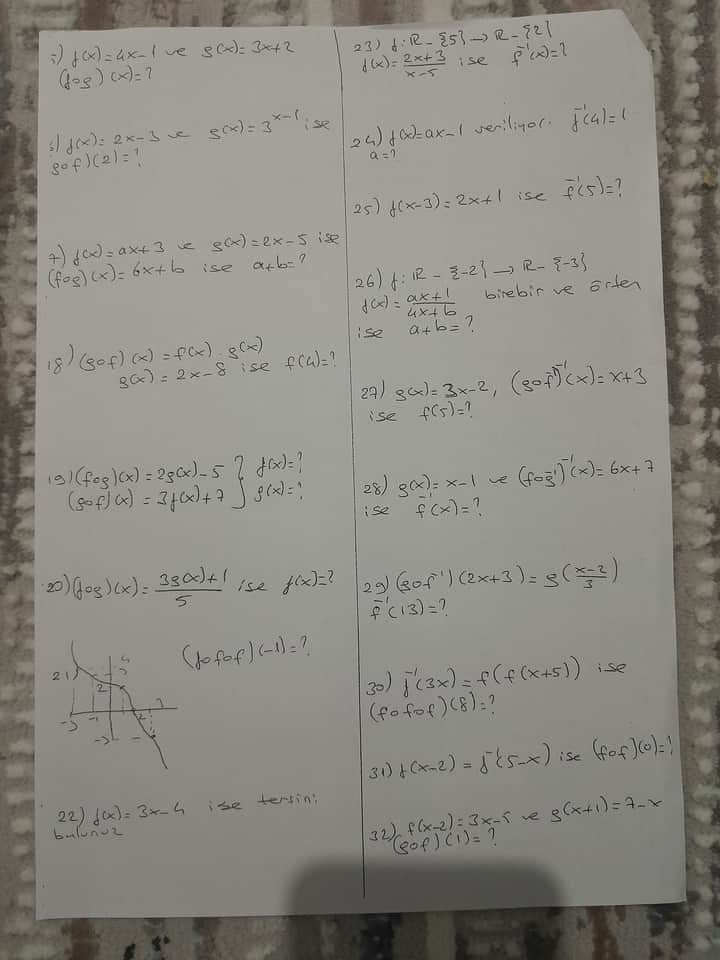 5) f(x)=4x-1 ve g(x)=3x+2
(fog)(x)=?
6) f(x)=2x-3 ve g(x)=3^(x-1) ise
gof)(2)=?
7) f(x)=ax+3 ve g(x)=2x-5 ise
(fog)(x)=6x+b ise a+b=?
18) (gof)(x)=f(x).g(x)
g(x)=2x-8 ise f(4)=?
19) (fog)(x)=2g(x)-5 } f(x)=?
(gof)(x)=3f(x)+7 } g(x)=?
20) (fog)(x)=(3g(x)+1)/5 ise f(x)=?
21)
(fofof)(-1)=?
4
3
2
-3 -1 2 3
-3
22) f(x)=3x-4 ise tersini
bulunuz
23) f:R-{5}→R-{2}
f(x)=(2x+3)/(x-5) ise f⁻¹(x)=?
24) f(x)=ax-1 veriliyor. f⁻¹(4)=1
a=?
25) f(x-3)=2x+1 ise f⁻¹(5)=?
26) f:R-{-2}→R-{-3}
f(x)=(ax+1)/(4x+b) birebir ve örten
ise a+b=?
27) g(x)=3x-2, (gof⁻¹)⁻¹(x)=x+3
ise f(5)=?
28) g(x)=x-1 ve (fog⁻¹)⁻¹(x)=6x+7
ise f⁻¹(x)=?
29) (gof⁻¹)(2x+3)=g((x-2)/3)
f⁻¹(13)=?
30) f⁻¹(3x)=f(f(x+5)) ise
(fofof)(8)=?
31) f(x-2)=f⁻¹(5-x) ise (fof)(0)=?
32) f(x-2)=3x-5 ve g(x+1)=7-x
(gof)(1)=?